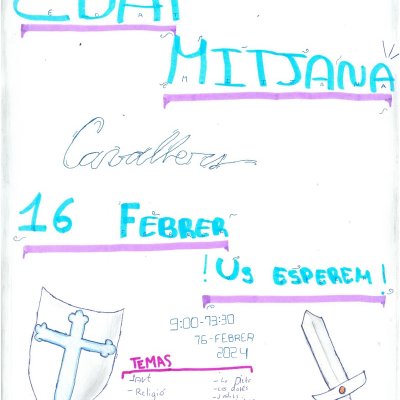 EDAT
MITJANA
Cavallers
16 FEBRER
! US ESPEREM !
9:00-13:30
16-FEBRER
2024
TEMAS
- Religió